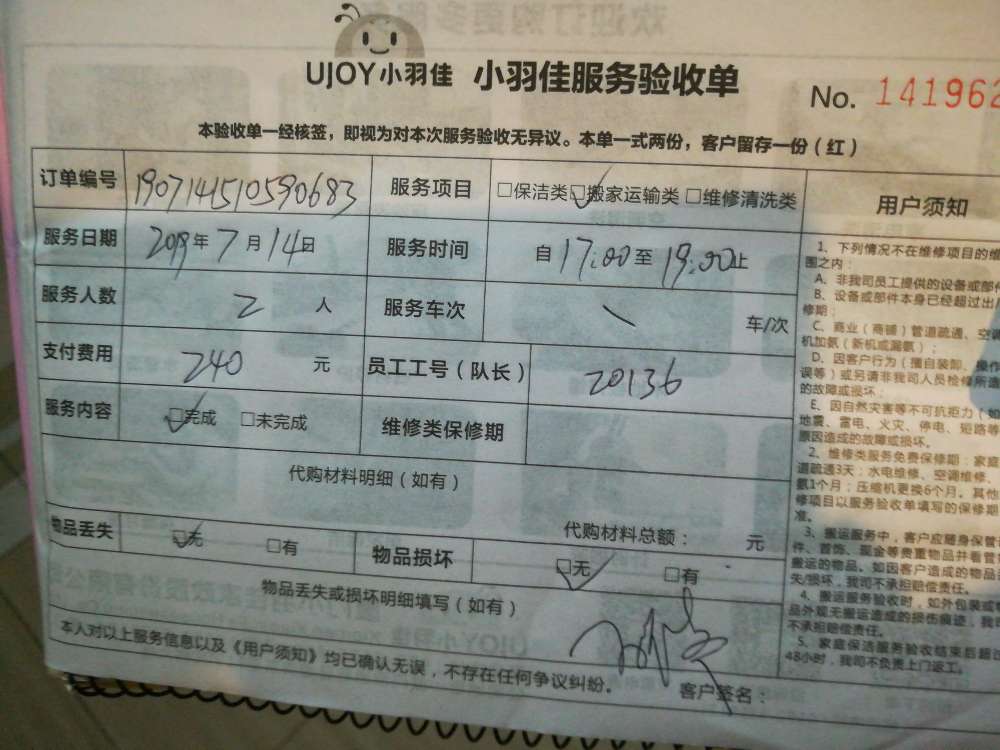 UJOY小羽佳 小羽佳服务验收单
No. 141962
本验收单一经核签，即视为对本次服务验收无异议。本单一式两份，客户留存一份（红）
订单编号 190714510590683 服务项目 □保洁类☑搬家运输类 □维修清洗类
服务日期 2019年7月14日 服务时间 自17:00至19:00止
服务人数 2 人 服务车次 \ 车/次
支付费用 240 元 员工工号（队长） 20136
服务内容 ☑完成 □未完成 维修类保修期
代购材料明细（如有）
代购材料总额： 元
物品丢失 ☑无 □有 物品损坏 ☑无 □有
物品丢失或损坏明细填写（如有）
本人对以上服务信息以及《用户须知》均已确认无误，不存在任何争议纠纷。
客户签名：
用户须知
1、下列情况不在维修项目的维
围之内：
A、非我司员工提供的设备或部件
B、设备或部件本身已经超过出厂
修期；
C、商业（商铺）管道疏通、空调
机加氨（新机或漏氨）；
D、因客户行为（擅自装卸、操作
误等）或另请非我司人员检修所造
的故障或损坏；
E、因自然灾害等不可抗拒力（如
地震、雷电、火灾、停电、短路等
原因造成的故障或损坏。
2、维修类服务免费保修期：家庭
道疏通3天；水电维修、空调维修、
氨1个月；压缩机更换6个月。其他
修项目以服务验收单填写的保修期
准。
3、搬运服务中，客户应随身保管
件、首饰、现金等贵重物品并看管
搬运的物品。如因客户造成的物品
失/损坏，我司不承担赔偿责任。
4、搬运服务验收时，如外包装或
品外观无搬运造成的损伤痕迹，我
不承担赔偿责任。
5、家庭保洁服务验收结束后超过
48小时，我司不负责上门返工。